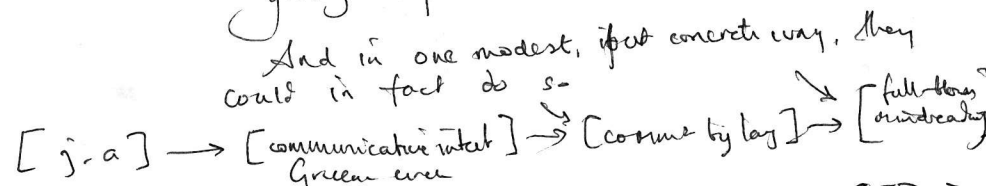 And in one modest, but concrete way, they
could in fact do so
[j.a] → [communicative intent] → [comms by lang] → [full-blown mindreading]
Gricean even